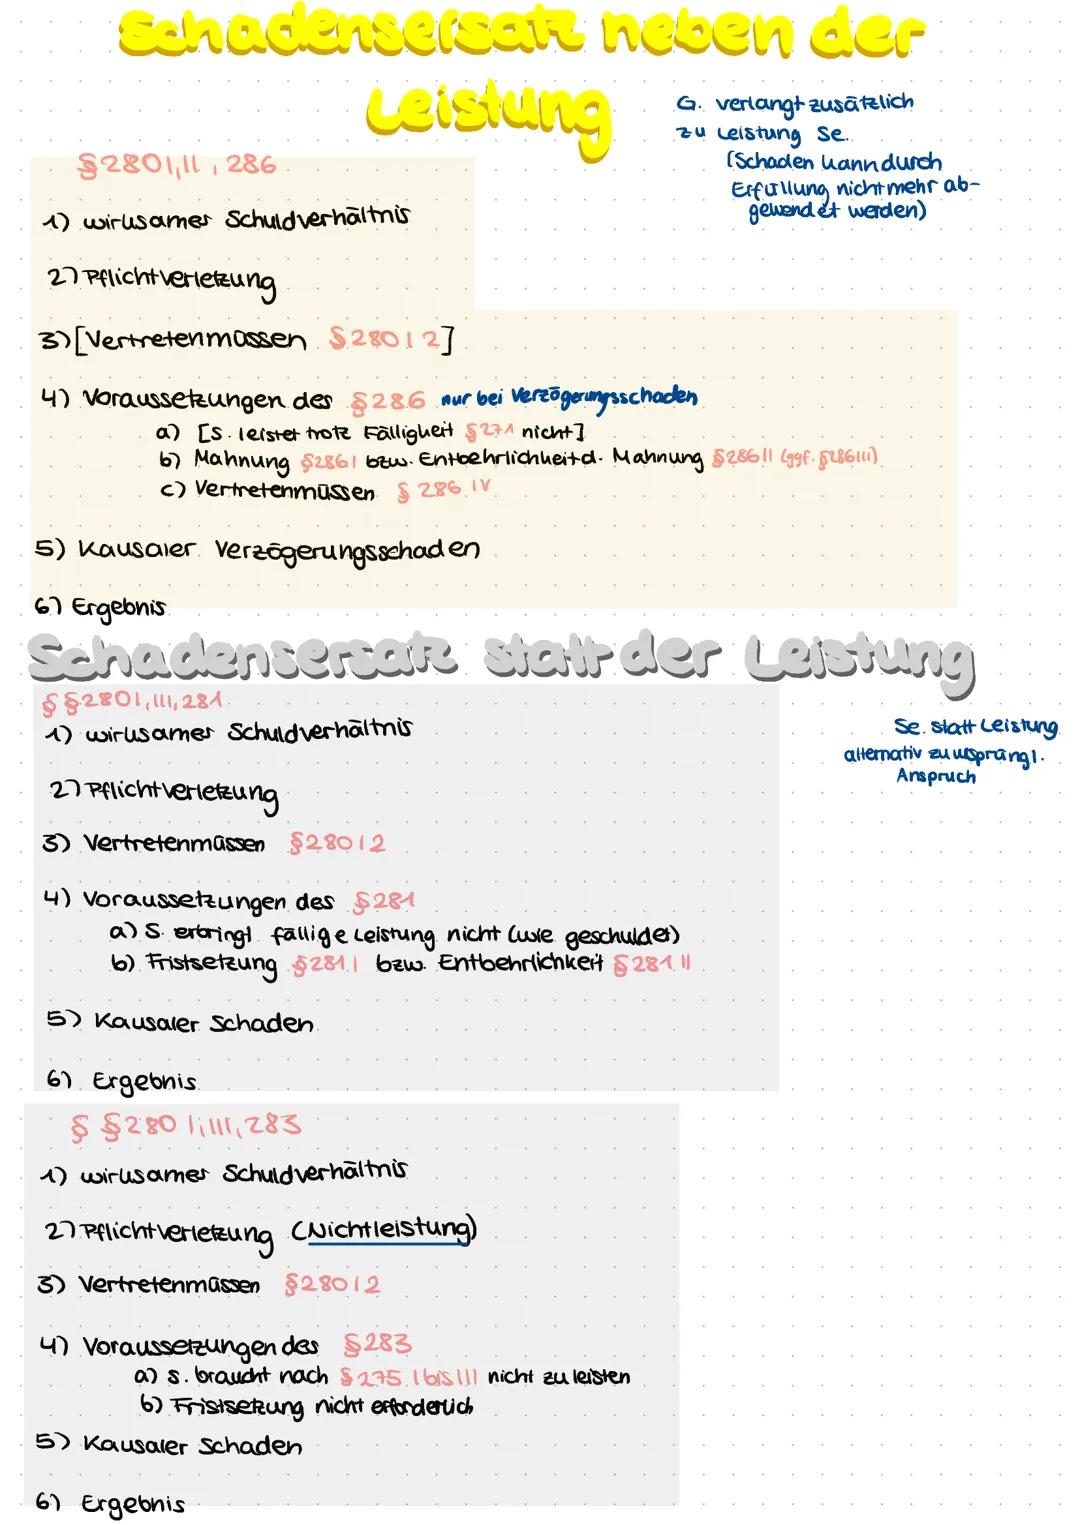 Schadensersatz neben der
Leistung
G. verlangt zusätzlich
zu Leistung Se.
(Schaden kann durch
Erfüllung nicht mehr ab-
gewendet werden)
§280 I, II, 286
1) wirksames Schuldverhältnis
2) Pflichtverletzung
3) [Vertretenmüssen §280 I 2]
4) Voraussetzungen des §286 nur bei Verzögerungsschaden
a) [S. leistet trotz Fälligkeit §271 nicht]
b) Mahnung §286 I bzw. Entbehrlichkeit d. Mahnung §286 II (ggf. §286 III)
c) Vertretenmüssen §286 IV
5) Kausaler Verzögerungsschaden
6) Ergebnis
Schadensersatz statt der Leistung
§§280 I, III, 281
Se. statt Leistung
alternativ zu ursprüngl.
Anspruch
1) wirksames Schuldverhältnis
2) Pflichtverletzung
3) Vertretenmüssen §280 I 2
4) Voraussetzungen des §281
a) S. erbringt fällige Leistung nicht (wie geschuldet)
b) Fristsetzung §281 I bzw. Entbehrlichkeit §281 II
5) Kausaler Schaden
6) Ergebnis
§§280 I, III, 283
1) wirksames Schuldverhältnis
2) Pflichtverletzung (Nichtleistung)
3) Vertretenmüssen §280 I 2
4) Voraussetzungen des §283
a) S. braucht nach §275 I bis III nicht zu leisten
b) Fristsetzung nicht erforderlich
5) Kausaler Schaden
6) Ergebnis